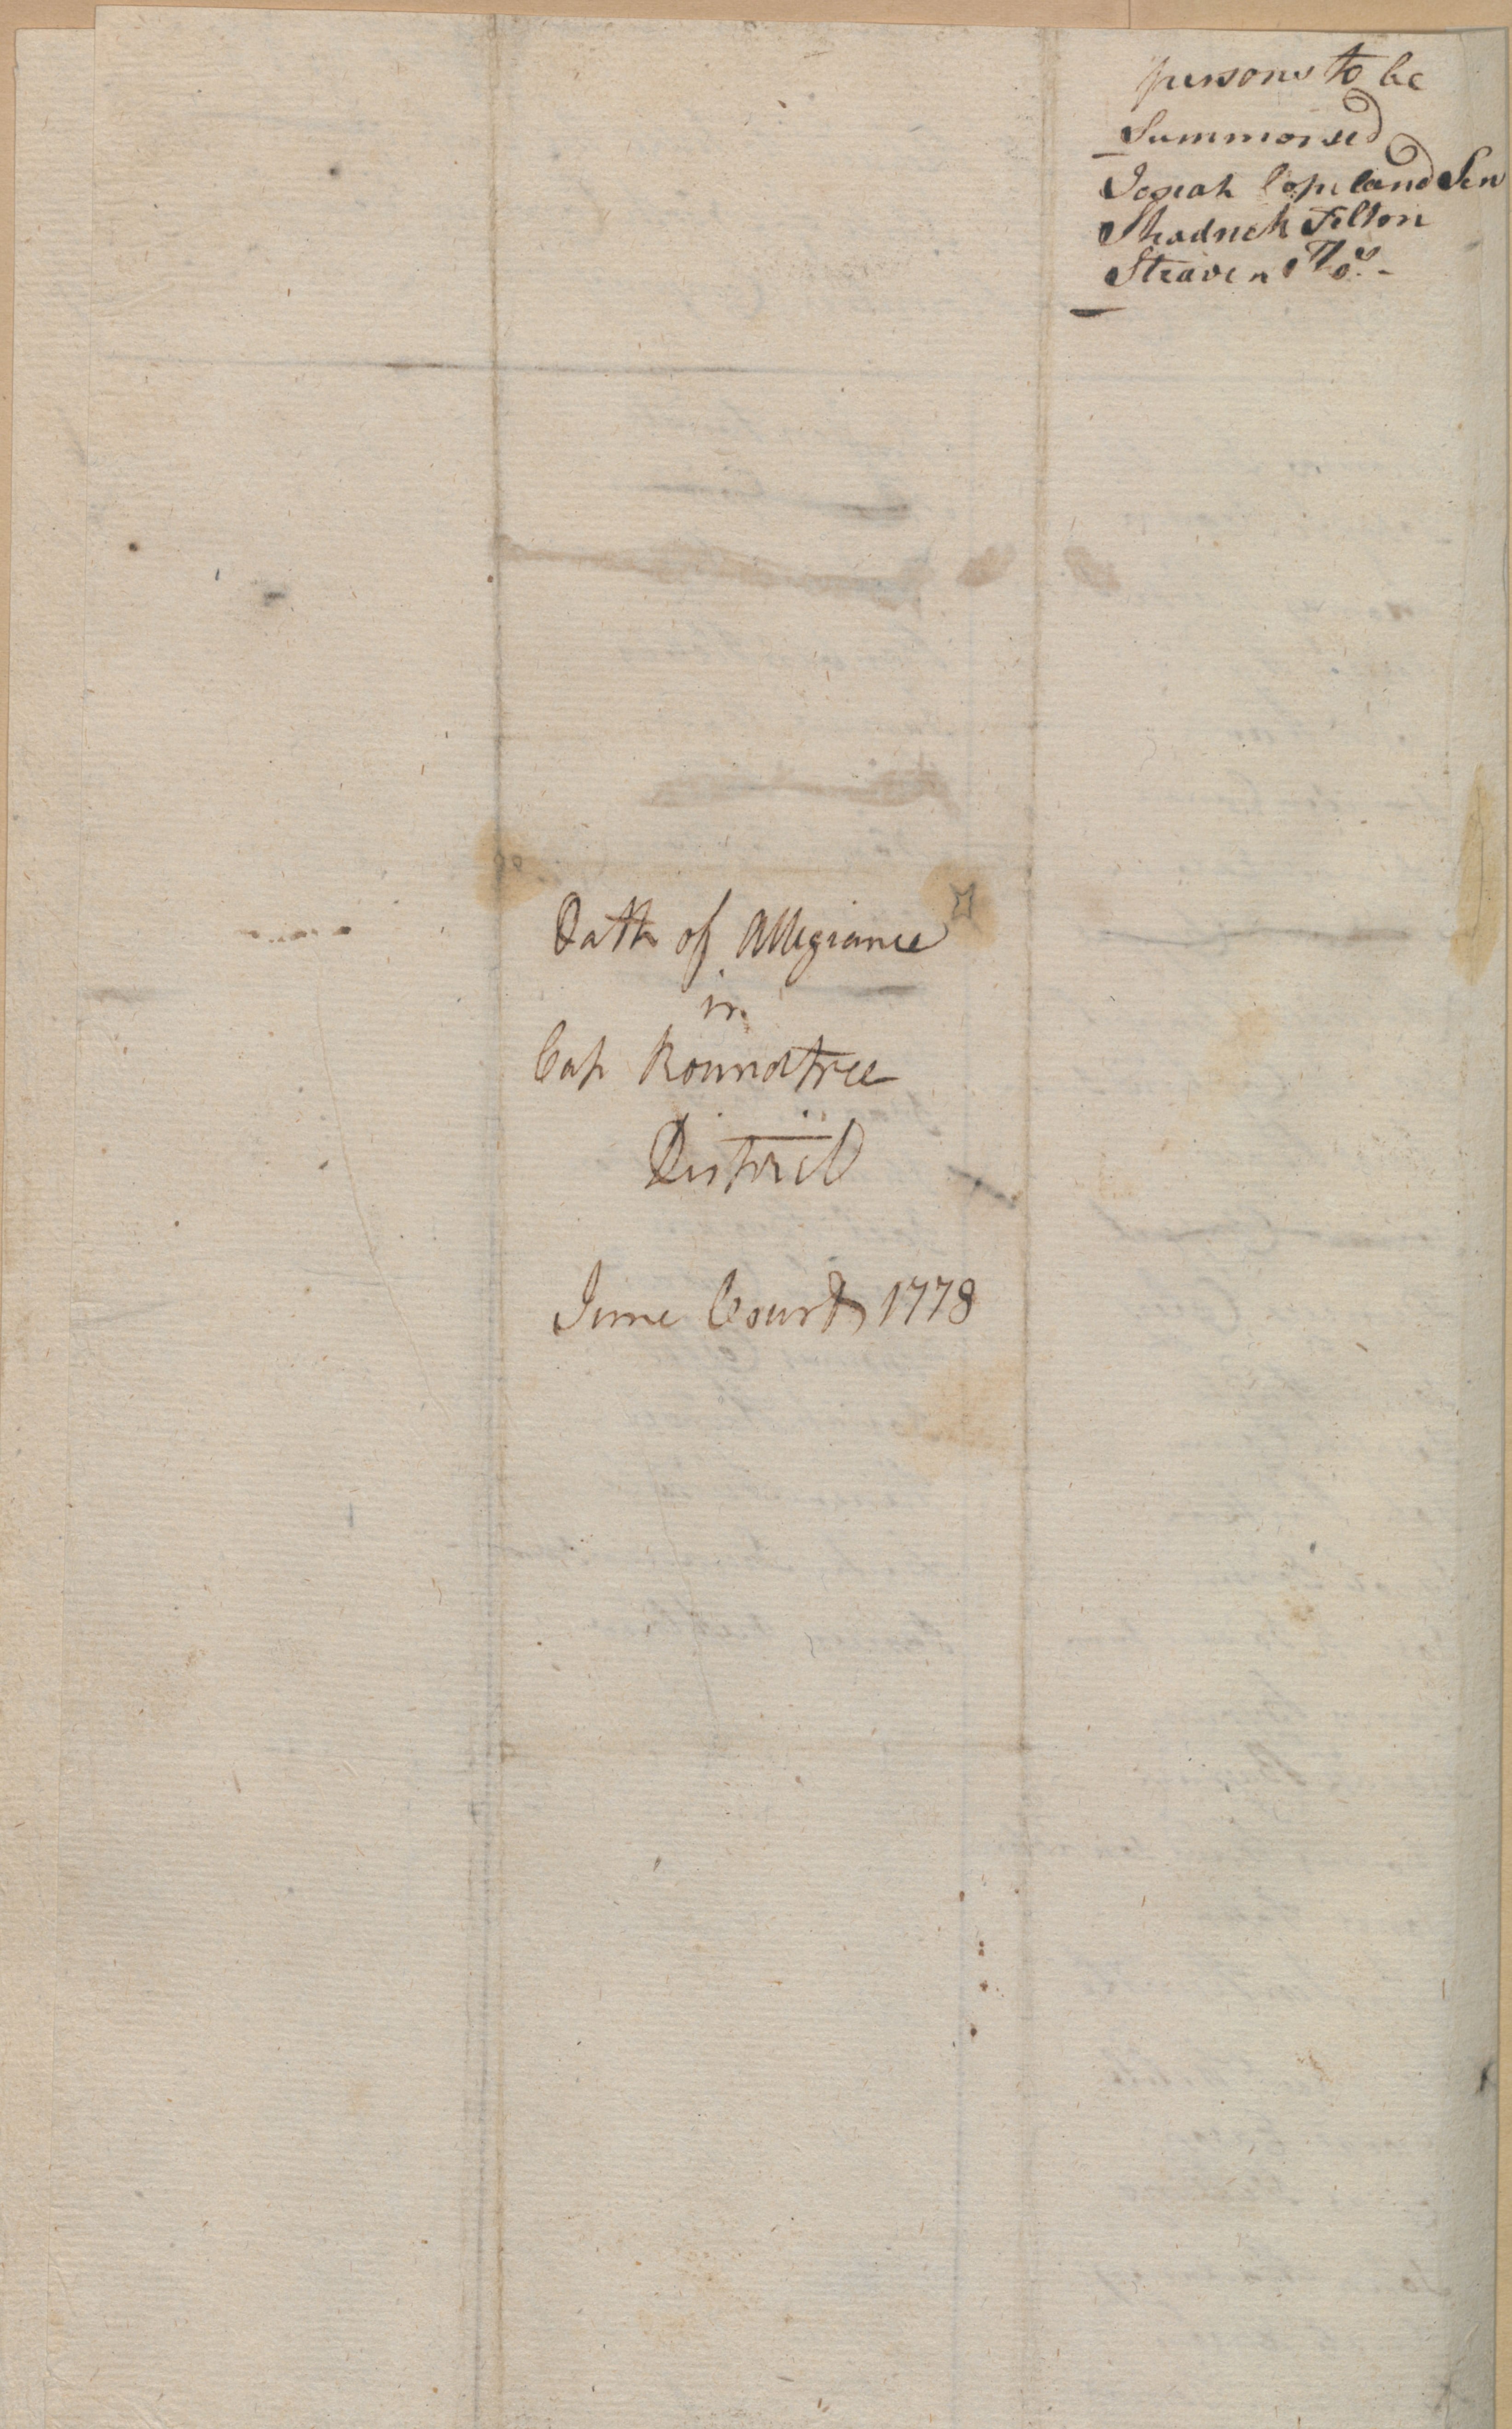 persons to be
Summonsed
Josiah Copeland Sen
Shadrick Felton
Oath of Allegiance
in
Cap Roundtree
District
June Court 1778